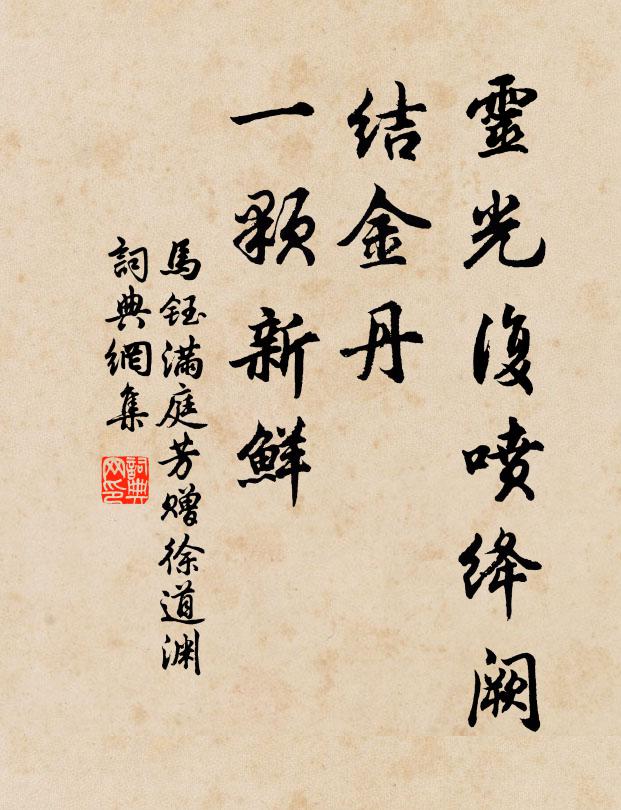 靈光復喷绛阙
结金丹
一颗新鮮
馬钰满庭芳赠徐道渊
詞典網集
詞典網印